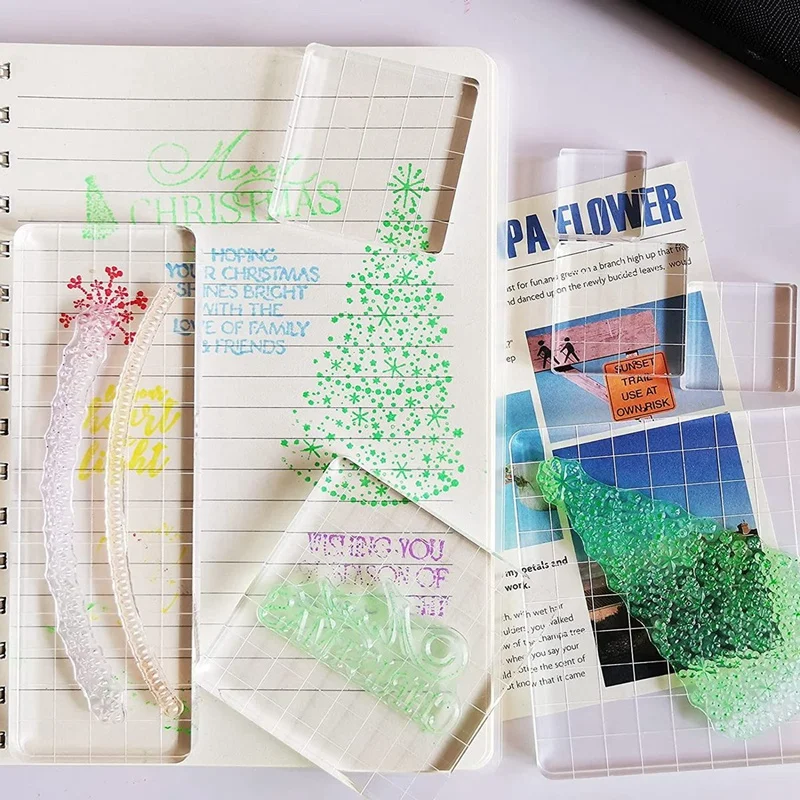 Merry
CHRISTMAS
HOPING
YOUR CHRISTMAS
SHINES BRIGHT
WITH THE
LOVE OF FAMILY
& FRIENDS
heart
light
WISHING YOU
SEASON OF
PA FLOWER
just for fun, and grew on a branch high up that tree
nd danced upon the newly budded leaves, would
SUNSET
TRAIL
USE AT
OWN RISK
my petals and
work.
with wet hair
oulders, you walked
ow of the champa tree
when you say your
uld notice the scent of
ot know that it came